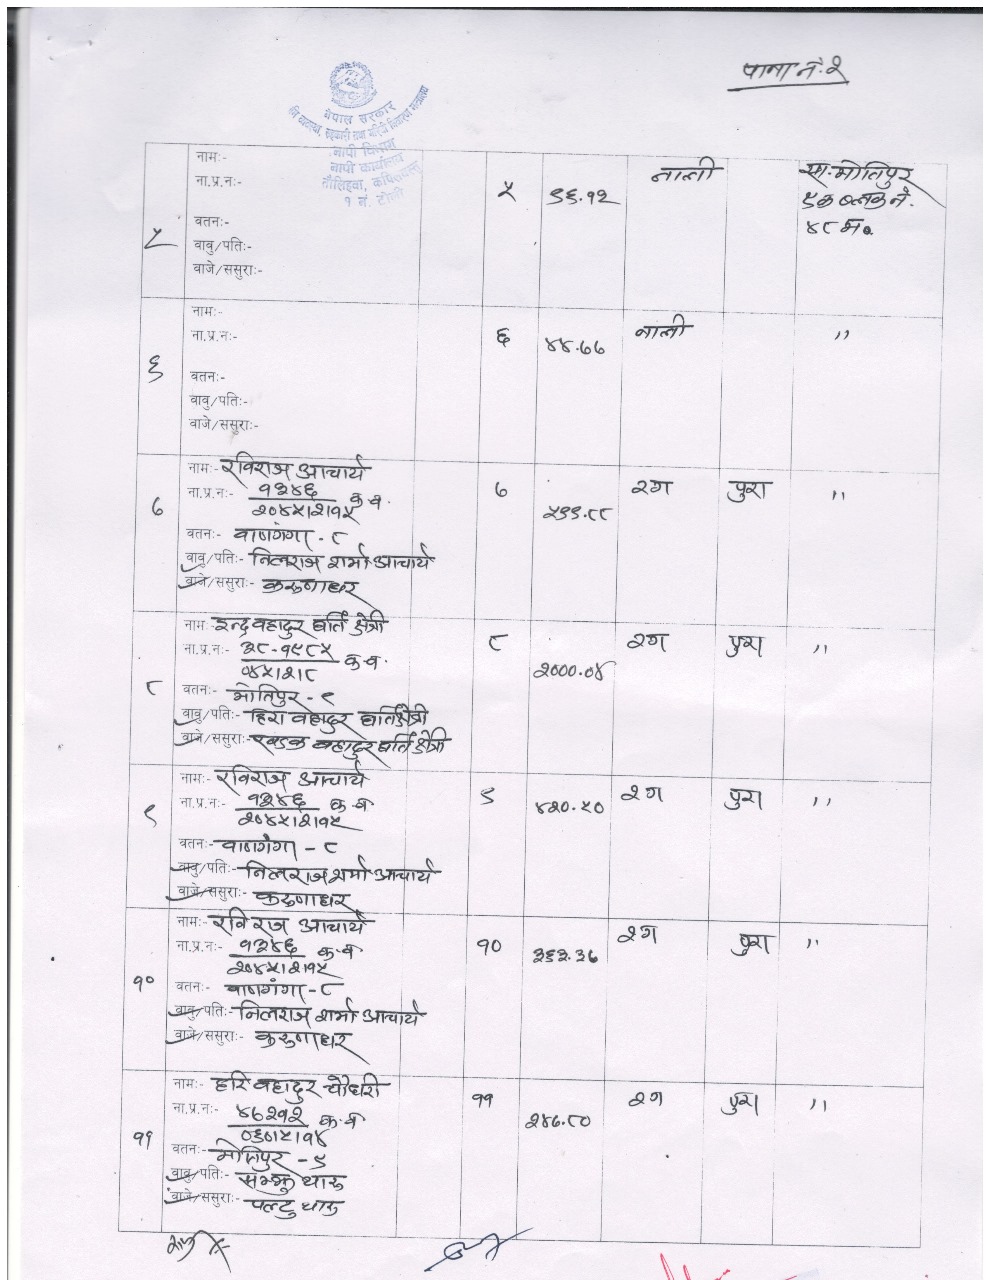 पाना नं. २
नेपाल सरकार
नापी विभाग
नापी कार्यालय
तौलिहवा, कपिलवस्तु
१ नं. टोली
५
नामः-
ना.प्र.नः-
वतनः-
वावु/पतिः-
वाजे/ससुराः-
५ ९६.१२ नाली सा. मोतिपुर
९क ब्लक नं.
४८ मा
६
नामः-
ना.प्र.नः-
वतनः-
वावु/पतिः-
वाजे/ससुराः-
६ ४४.७७ नाली ,,
७
नामः- रविराज आचार्य
ना.प्र.नः- १३४६ क.व.
२०४५।२।१५
वतनः- वाणगंगा - ८
वावु/पतिः- निलराज शर्मा आचार्य
वाजे/ससुराः- करुणाधर
७ ५९९.८८ २ग पुरा ,,
८
नामः- इन्द्र वहादुर घर्ति क्षेत्री
ना.प्र.नः- ३८-१९८५ क.व.
०४५।२।८
वतनः- मोतिपुर - ९
वावु/पतिः- हिरा वहादुर घर्ति क्षेत्री
वाजे/ससुराः- खडक वहादुर घर्ति क्षेत्री
८ २०००.०४ २ग पुरा ,,
९
नामः- रविराज आचार्य
ना.प्र.नः- १३४६ क.व
२०४५।२।१५
वतनः- वाणगंगा - ८
वावु/पतिः- निलराज शर्मा आचार्य
वाजे/ससुराः- करुणाधर
९ ४२०.५० २ग पुरा ,,
१०
नामः- रविराज आचार्य
ना.प्र.नः- १३४६ क.व
२०४५।२।१५
वतनः- वाणगंगा - ८
वावु/पतिः- निलराज शर्मा आचार्य
वाजे/ससुराः- करुणाधर
१० ३६२.३७ २ग पुरा ,,
११
नामः- हरि वहादुर चौधरी
ना.प्र.नः- ४७२१२ क.व
०६०।५।१४
वतनः- मोतिपुर - ९
वावु/पतिः- सम्झु थारु
वाजे/ससुराः- पल्टु थारु
११ २४७.८० २ग पुरा ,,